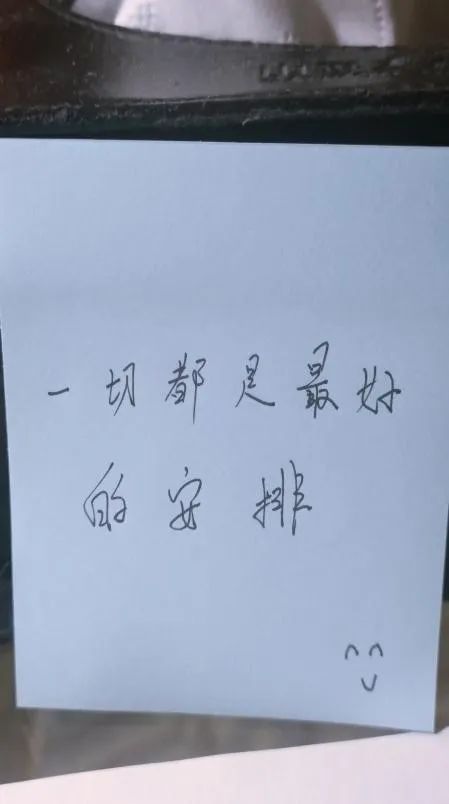 一切都是最好
的安排